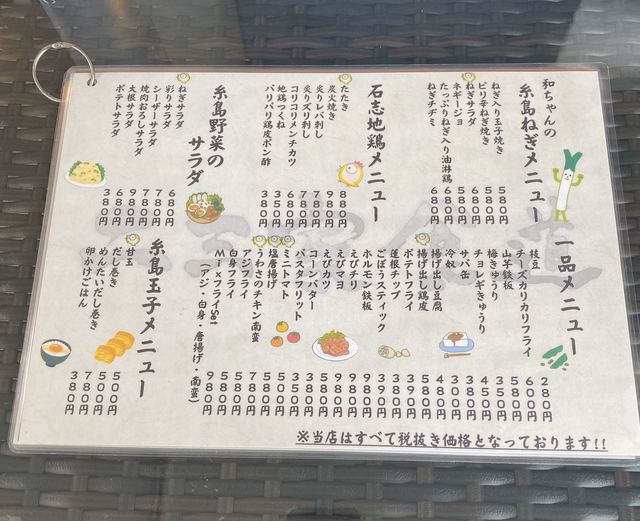 和ちゃんの
糸島ねぎメニュー
ねぎ入り玉子焼き 580円
ピリ辛ねぎ焼き 580円
ねぎサラダ 680円
ネギージョ 580円
たっぷりねぎ入り油淋鶏 680円
ねぎチヂミ 680円
石志地鶏メニュー
たたき 880円
炭火焼き 980円
炙りレバ刺し 780円
炙りズリ刺し 780円
コリコリメンチカツ 680円
地鶏つくね 350円
パリパリ鶏皮ポン酢 380円
糸島野菜の
サラダ
ねぎサラダ 680円
彩りサラダ 780円
シーザーサラダ 780円
焼肉おろしサラダ 980円
大根サラダ 680円
ポテトサラダ 380円
一品メニュー
枝豆 280円
チーズカリカリフライ
山芋鉄板
梅きゅうり
チョレギきゅうり
サバ缶
冷奴
揚げ出し豆腐
揚げ出し鶏皮
ポテトフライ
蓮根チップ
ごぼうスティック
ホルモン鉄板
えびチリ
えびマヨ
えびカツ
コーンバター
パスタフリット
ミニトマト
塩唐揚げ
うわさのチキン南蛮
アジフライ
白身フライ
MixフライSet
(アジ・白身・唐揚げ・南蛮) 980円
糸島玉子メニュー
甘玉 500円
だし巻き 500円
めんたいだし巻き 780円
卵かけごはん 380円
※当店はすべて税抜き価格となっております!!